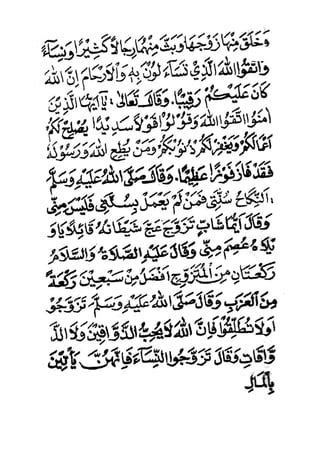 وَخَلَقَ مِنْهَا زَوْجَهَا وَبَثَّ مِنْهُمَا رِجَالًا كَثِيْرًا وَنِسَآءً
وَاتَّقُوا اللهَ الَّذِيْ تَسَآءَ لُوْنَ بِهٖ وَالْاَرْحَامَ اِنَّ اللهَ
كَانَ عَلَيْكُمْ رَقِيْبًا. وَقَالَ تَعَالٰى: يَا اَيُّهَا الَّذِيْنَ
اٰمَنُوا اتَّقُوا اللهَ وَقُوْلُوْا قَوْلًا سَدِيْدًا يُصْلِحْ لَكُمْ
اَعْمَالَكُمْ وَيَغْفِرْ لَكُمْ ذُنُوْبَكُمْ وَمَنْ يُطِعِ اللهَ وَرَسُوْلَهُ
فَقَدْ فَازَ فَوْزًا عَظِيْمًا. وَقَالَ صَلَّى اللهُ عَلَيْهِ وَسَلَّمَ
: اَلنِّكَاحُ سُنَّتِيْ فَمَنْ لَمْ يَعْمَلْ بِسُنَّتِيْ فَلَيْسَ مِنِّيْ
وَقَالَ اَيُّمَا شَابٍّ تَزَوَّجَ عَجَّ شَيْطَانُهُ قَائِلًا يَا وَ
يْلَاهُ عُصِمَ مِنِّيْ وَقَالَ عَلَيْهِ الصَّلَاةُ وَالسَّلَامُ
رَكْعَتَانِ مِنَ الْمُتَزَوِّجِ اَفْضَلُ مِنْ سَبْعِيْنَ رَكْعَةً
مِنَ الْعَزَبِ وَقَالَ صَلَّى اللهُ عَلَيْهِ وَسَلَّمَ تَزَوَّجُوْ
اوَلَا تُطَلِّقُوْا فَاِنَّ اللهَ لَا يُحِبُّ الذَّوَّاقِيْنَ وَلَا الذَّ
وَّاقَاتِ وَقَالَ تَزَوَّجُوا النِّسَآءَ فَاِنَّهُنَّ يَأْتِيْنَ
بِالْمَالِ